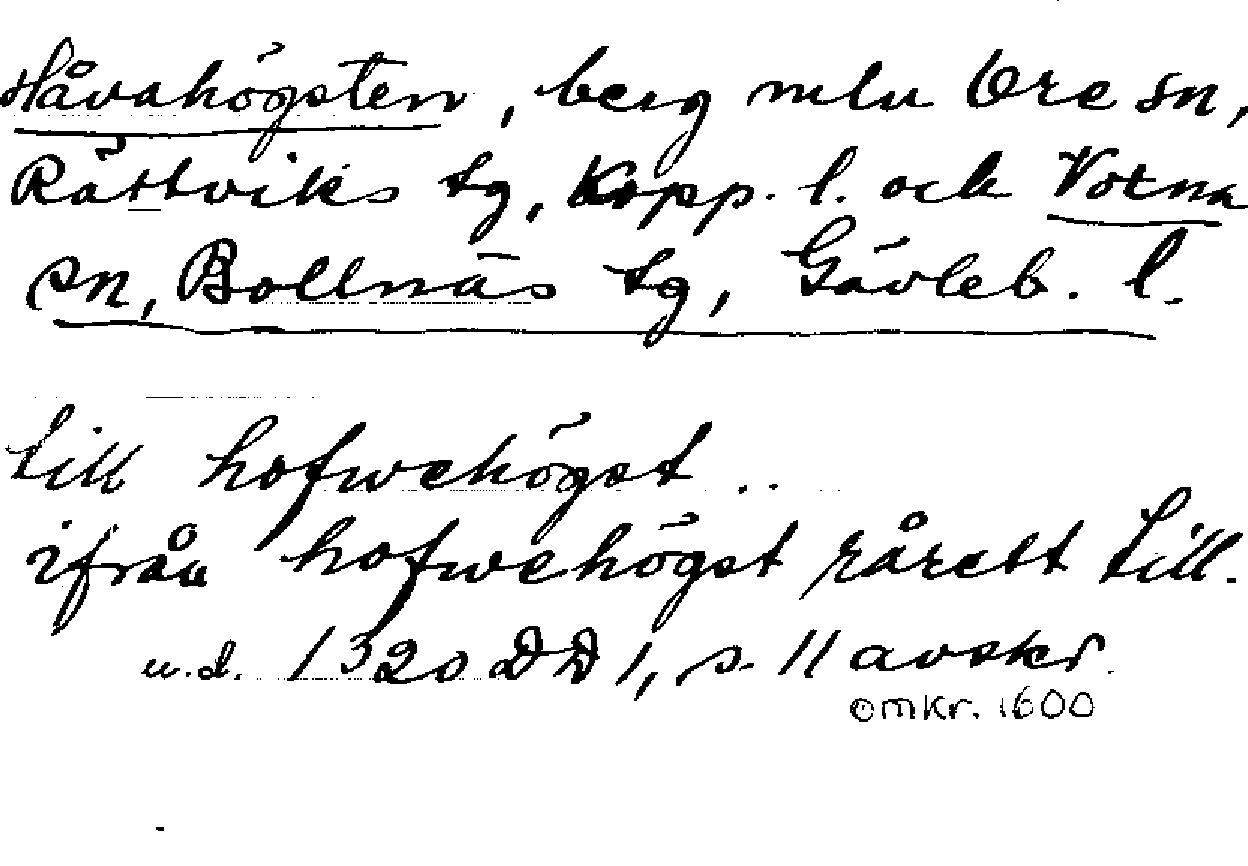 Håvahögsten, berg mln Ore sn,
Rättviks tg, Kopp. l. och Voxna
sn, Bollnäs tg, Gävleb. l.
till hofwehögst ..
ifrån hofwehögst rårett till.
u.d. 1320 DD 1, s. 11 avskr.
omkr. 1600